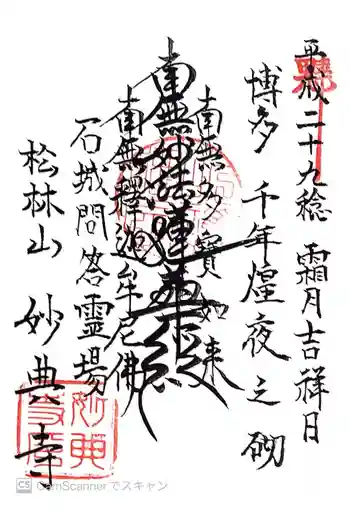 平成二十九稔 霜月吉祥日
博多 千年煌夜之砌
南無多寳如来
南無妙法蓮華経
南無釋迦牟尼佛
石城問答霊場
松林山 妙典寺
妙典
CS CamScannerでスキャン